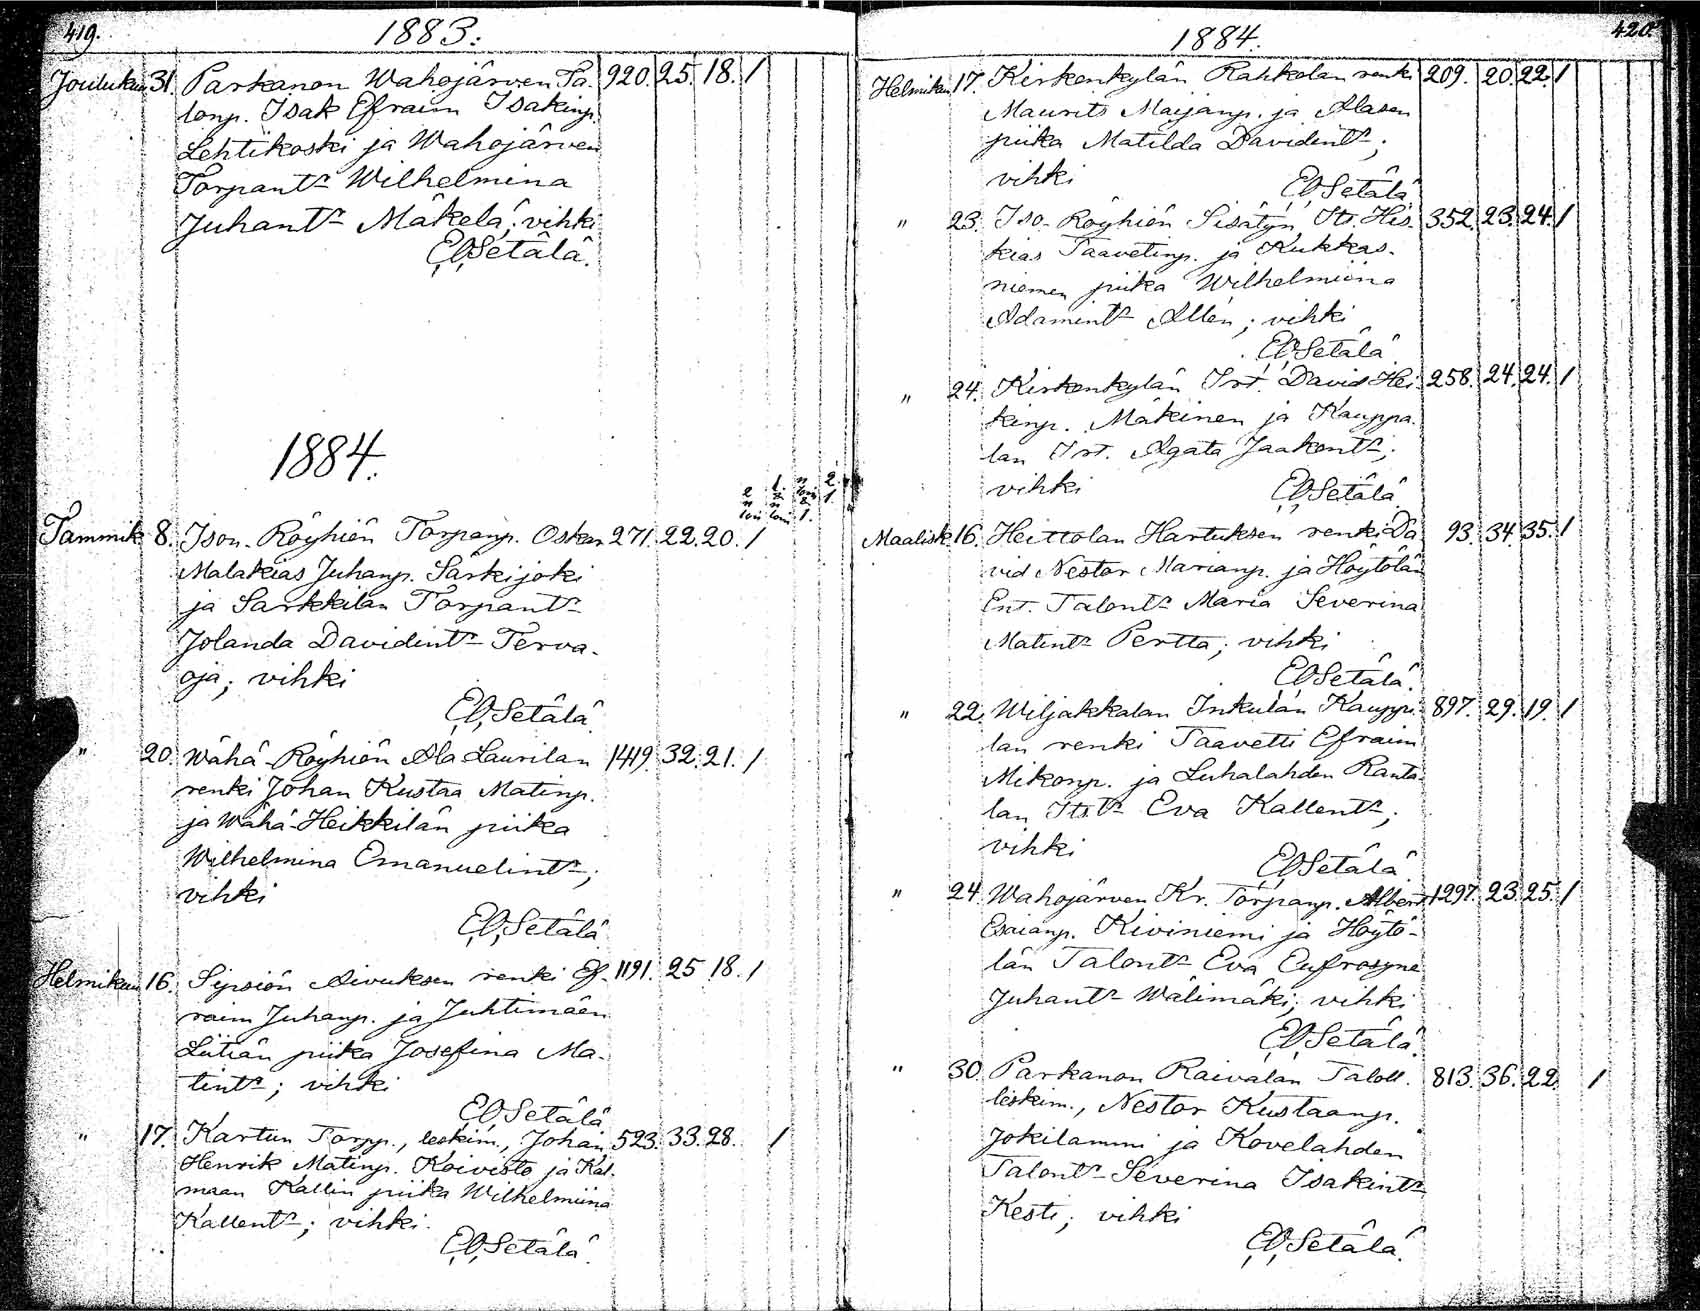 419.
1883.
Joulukuu 31. Parkanon Wahojärven Ta- 920. 25. 18. 1
lonp. Isak Efraim Isakinp.
Lehtikoski ja Wahojärven
Torpantr Wilhelmina
Juhantr Mäkelä; vihki
E.O.Setälä.
1884.
2 1. n 2.
n n 1.
1.
Tammik. 8. Ison-Röyhiön Torpanp. Oskar 271. 22. 20. 1
Malakias Juhanp. Särkijoki
ja Sarkkilan Torpantr
Jolanda Davidintr Terva-
oja; vihki
E.O.Setälä
" 20. Wähä-Röyhiön Ala Laurilan 1449. 32. 21. 1
renki Johan Kustaa Matinp.
ja Wähä-Heikkilän piika
Wilhelmina Emanuelintr;
vihki
E.O.Setälä
Helmikuu 16. Sipsiön Aivuksen renki Ef- 1191. 25 18. 1
raim Juhanp. ja Juhtimäen
Liitiän piika Josefina Ma-
tintr; vihki
E.O.Setälä
" 17. Kartun Torpp., leskim., Johan 523. 33. 28. 1
Henrik Matinp. Koivisto ja Kal-
maan Kallin piika Wilhelmiina
Kallentr; vihki.
E.O.Setälä.
420.
1884.
Helmikuu 17. Kirkonkylän Rahkolan renki 209. 20. 22. 1
Maurits Maijanp. ja Alasen
piika Matilda Davidintr;
vihki
E.O.Setälä
" 23. Iso-Röyhiön Sisätyn Its. His- 352. 23. 24. 1
kias Taavetinp. ja Kukkas-
niemen piika Wilhelmiina
Adamintr Allén; vihki
E.O.Setälä.
" 24. Kirkonkylän Irt. David Hei- 258. 24. 24. 1
kinp. Mäkinen ja Kauppa-
lan Irt. Agata Jaakontr;
vihki
E.O.Setälä
Maalisk. 16. Heittolan Hartuksen renki Da 93. 34. 35. 1
vid Nestor Marianp. ja Höytölän
Ent. Talontr Maria Severina
Matintr Pertta; vihki
E.O.Setälä.
" 22. Wiljakkalan Inkulan Kauppi- 897. 29. 19. 1
lan renki Taavetti Efraim
Mikonp. ja Luhalahden Ranta-
lan Its.tr Eva Kallentr;
vihki
E.O.Setälä.
" 24. Wahojärven Kr. Torpanp. Albert 1297. 23. 25. 1
Esaianp. Kiviniemi ja Höytö-
län Talontr Eva Eufrosyne
Juhantr Wälimäki; vihki
E.O.Setälä.
" 30. Parkanon Raivalan Taloll. 813. 36. 22. 1
leskim., Nestor Kustaanp.
Jokilammi ja Kovelahden
Talontr Severina Isakintr
Kesti; vihki
E.O.Setälä.